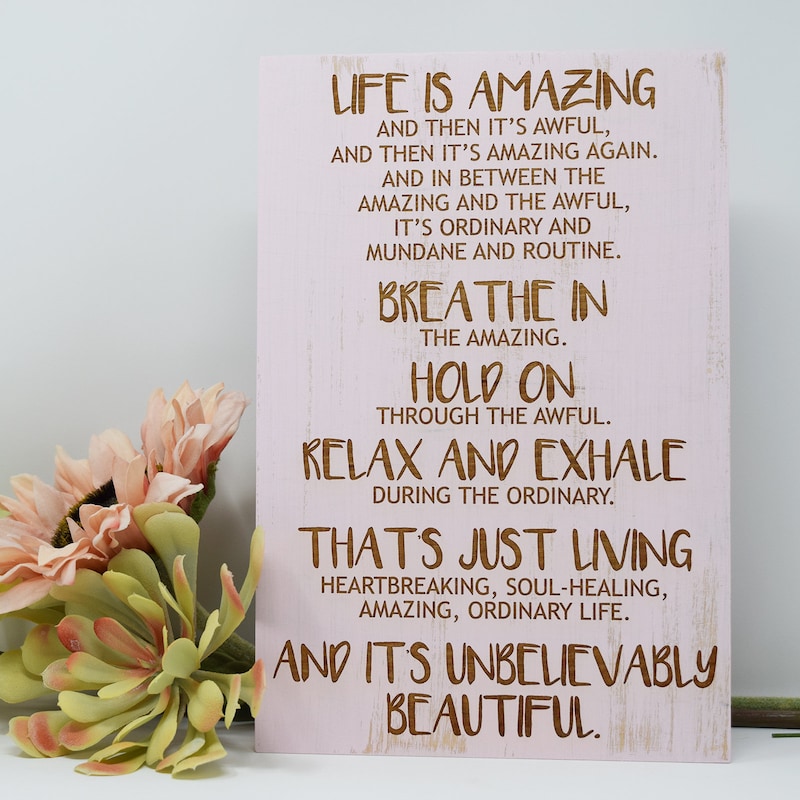 LIFE IS AMAZING
AND THEN IT'S AWFUL,
AND THEN IT'S AMAZING AGAIN.
AND IN BETWEEN THE
AMAZING AND THE AWFUL,
IT'S ORDINARY AND
MUNDANE AND ROUTINE.
BREATHE IN
THE AMAZING.
HOLD ON
THROUGH THE AWFUL.
RELAX AND EXHALE
DURING THE ORDINARY.
THAT'S JUST LIVING
HEARTBREAKING, SOUL-HEALING,
AMAZING, ORDINARY LIFE.
AND IT'S UNBELIEVABLY
BEAUTIFUL.